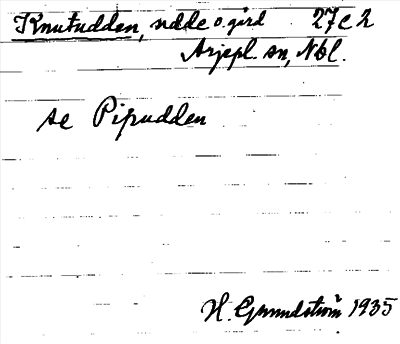 Knutudden, udde o. gård 27 c h
Arjepl. sn, Nbl.
se Pipudden
H. Grundström 1935